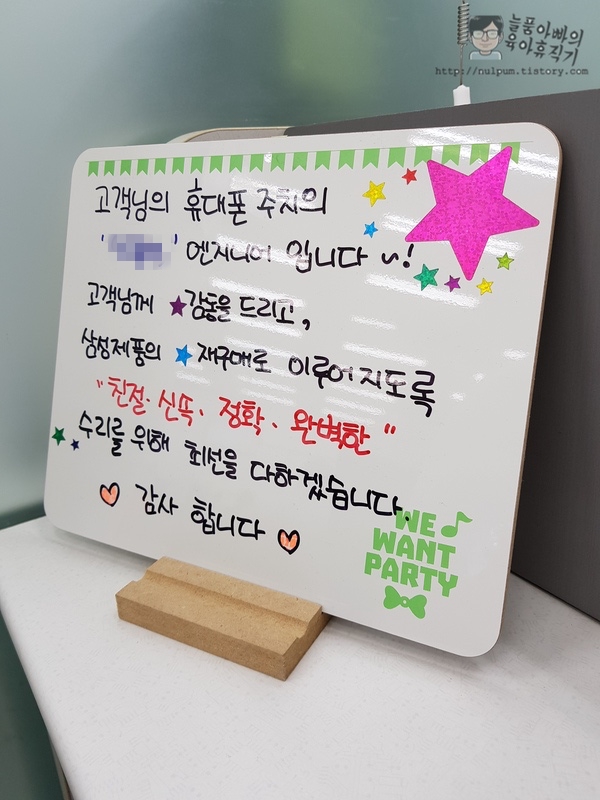 늘품아빠의
육아휴직기
http://nulpum.tistory.com
고객님의 휴대폰 주치의
' ' 엔지니어 입니다 ~!
고객님께 ★감동을 드리고,
삼성제품의 ★재구매로 이루어지도록
"친절·신뜩·정확·완벽한"
수리를 위해 최선을 다하겠습니다.
♡ 감사 합니다 ♡
WE ♪
WANT
PARTY